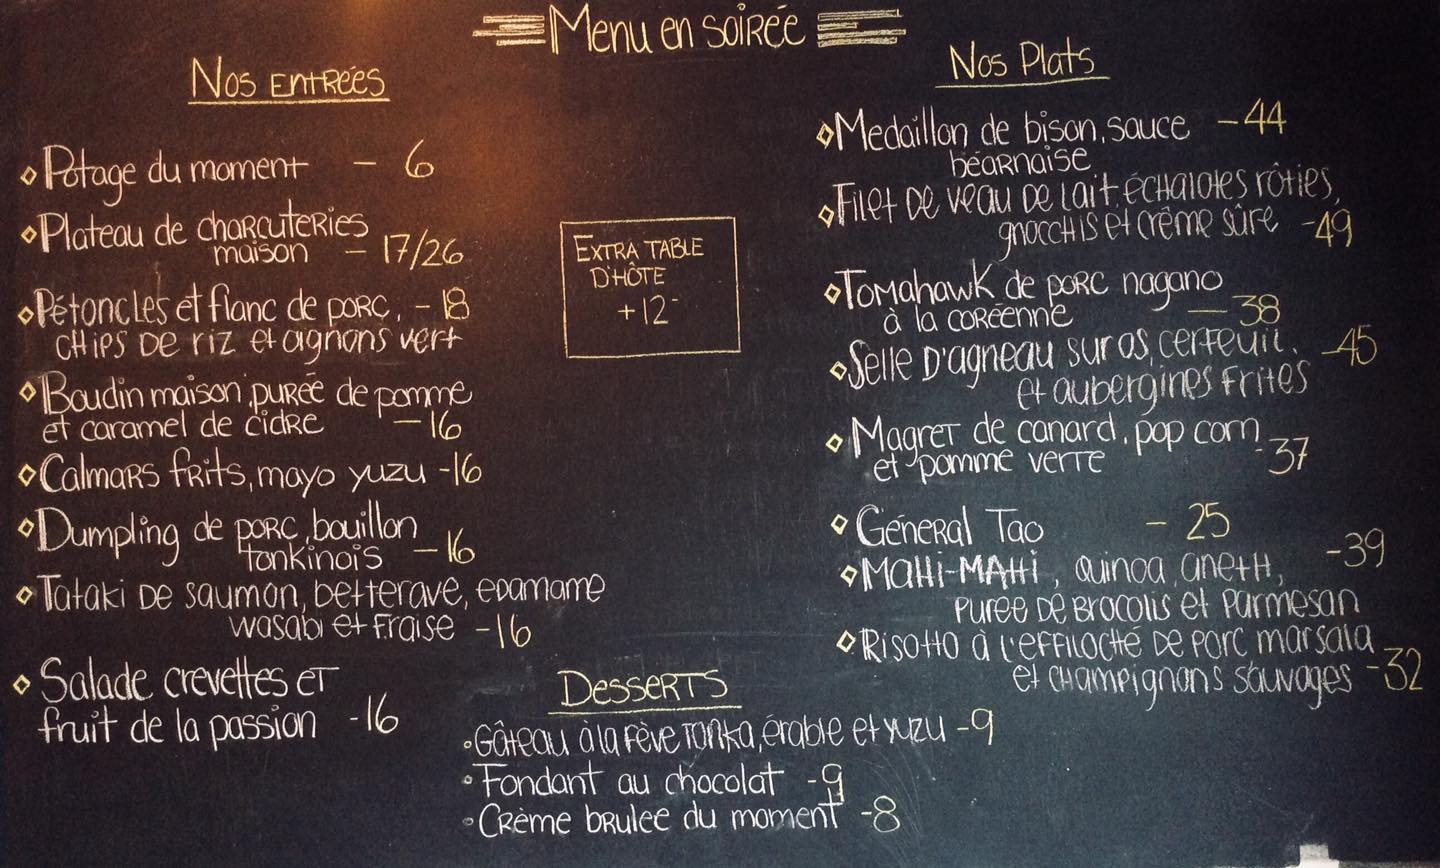 Menu en soirée
Nos Entrées
Potage du moment - 6
Plateau de charcuteries
maison - 17/26
Pétoncles et flanc de porc, - 18
chips de riz et oignons vert
Boudin maison, purée de pomme
et caramel de cidre - 16
Calmars frits, mayo yuzu - 16
Dumpling de porc, bouillon
tonkinois - 16
Tataki de saumon, betterave, edamame
wasabi et fraise - 16
Salade crevettes et
fruit de la passion - 16
Extra table
d'hôte
+12-
Desserts
Gâteau à la fève tonka, érable et yuzu - 9
Fondant au chocolat - 9
Crème brulee du moment - 8
Nos Plats
Medaillon de bison, sauce - 44
béarnaise
Filet de veau de lait, échalotes rôties,
gnocchis et crême sûre - 49
Tomahawk de porc nagano
à la coréenne - 38
Selle d'agneau sur os, cerfeuil, - 45
et aubergines frites
Magret de canard, pop corn
et pomme verte - 37
Géneral Tao - 25
Mahi-Mahi, quinoa, aneth, - 39
puree de brocolis et parmesan
Risotto à l'effiloché de porc marsala
et champignons sauvages - 32